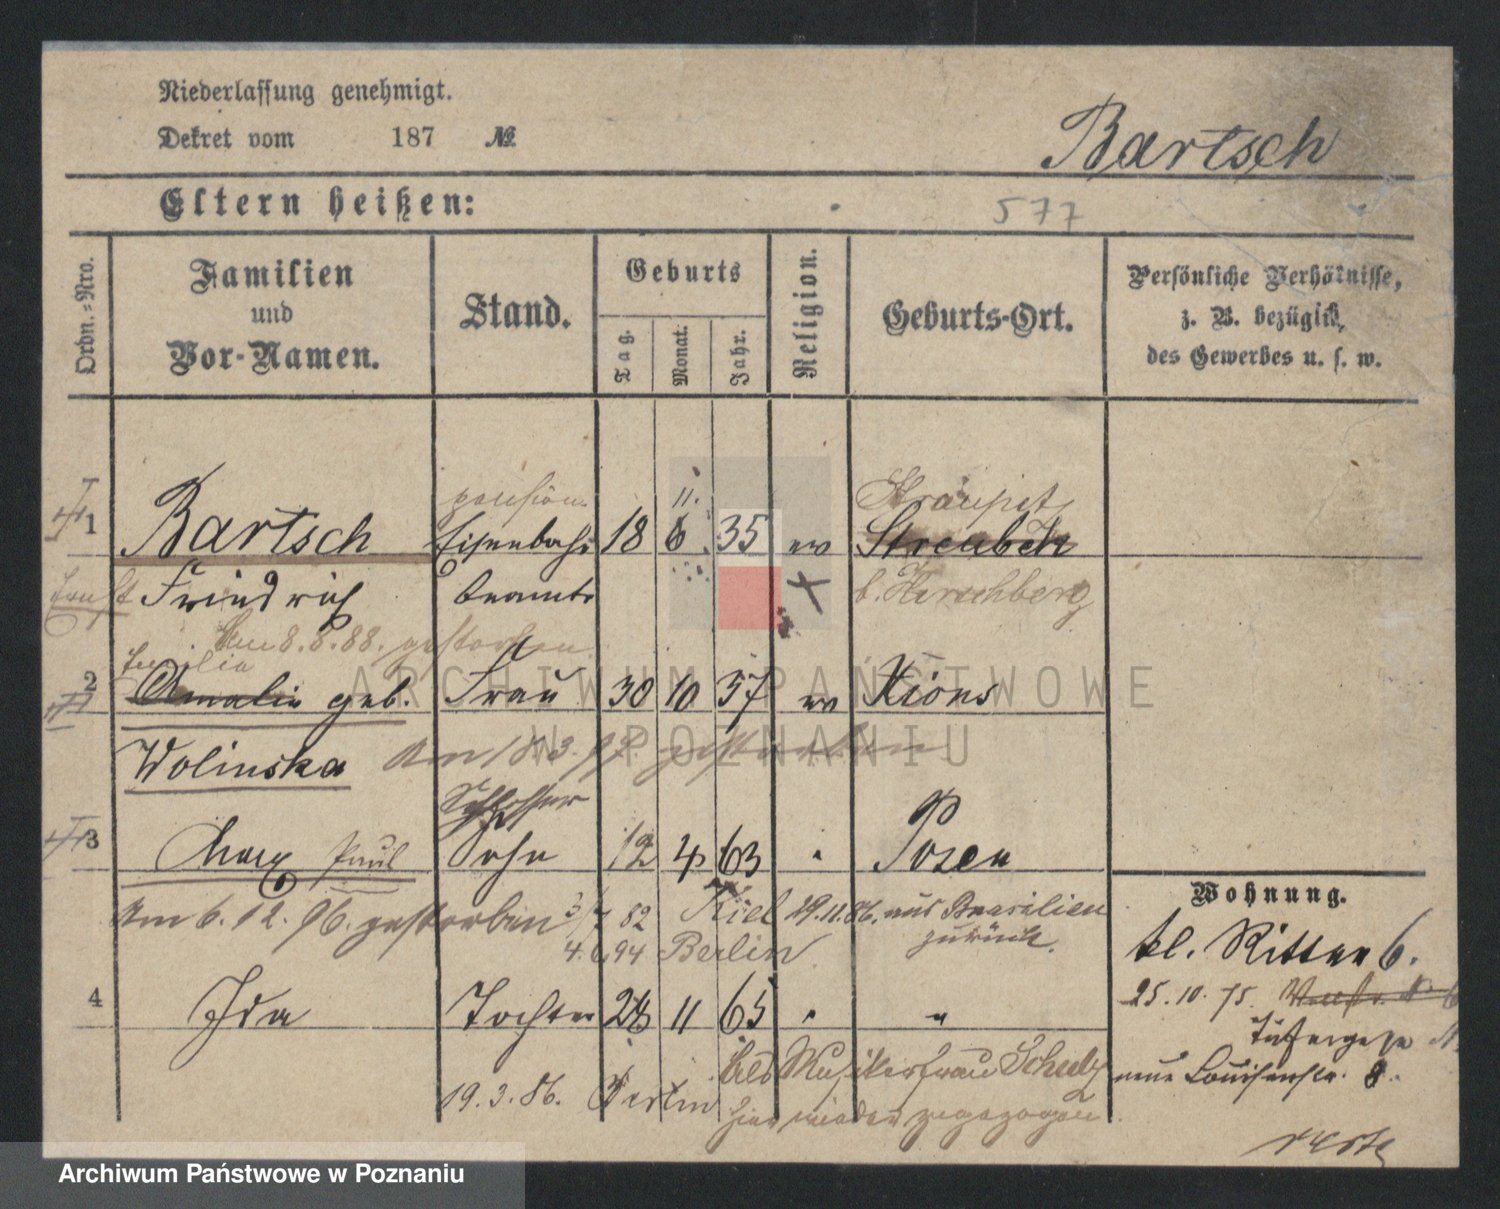 Niederlassung genehmigt.
Dekret vom 187 №
Bartsch
Eltern heißen:
577
Ordn.-Nro.
Familien
und
Vor-Namen.
Stand.
Geburts
Tag.
Monat.
Jahr.
Religion.
Geburts-Ort.
Persönliche Verhältnisse,
z. B. bezüglich
des Gewerbes u. s. w.
pension. 11. Straupitz
1 Bartsch Eisenbahn 18 6. 35 ev
Ernst Friedrich beamter b. Hirschberg
Am 8.8.88. gestorben.
Emilie
2 Amalie geb. Frau 30 10 37 ev Xions
Wolinska Am 18.3.97 gestorben
Schlosser
3 Max Paul Sohn 12 4 63 " Posen
Am 6.12.96. gestorben 3/7 82 Kiel 29.11.86. aus Brasilien
zurück.
4.6.94 Berlin.
4 Ida Tochter 11 65 " "
19.3.86. Berlin
Als Musikerfrau Schulz
hier wieder zugezogen.
Wohnung.
kl. Ritter 6.
25.10.75.
neue Louisenstr. 8.
ARCHIWUM PAŃSTWOWE
W POZNANIU
Archiwum Państwowe w Poznaniu